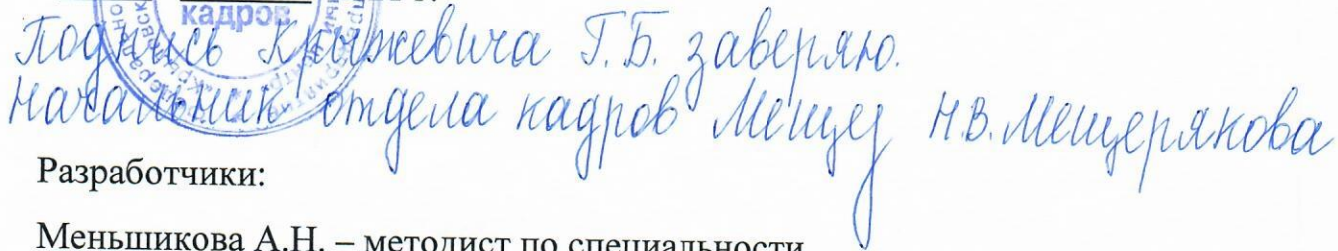 кадров
Подпись Крыжевича Г.Б. заверяю.
Начальник отдела кадров Мещер Н.В. Мещерякова
Разработчики:
Меньшикова А.Н. – методист по специальности